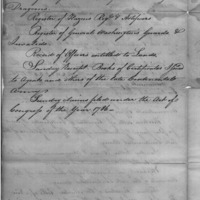 Dragoons
Register of Hazens Regt & Artificers
Register of General Washington's Guards &
Invalids
Record of Officers entitled to Lands
Sundry Receipt Books of Certificates
to Agents and others of the late Continental
Army
Sundry claims filed under the Act of
Congress of the Year 1786